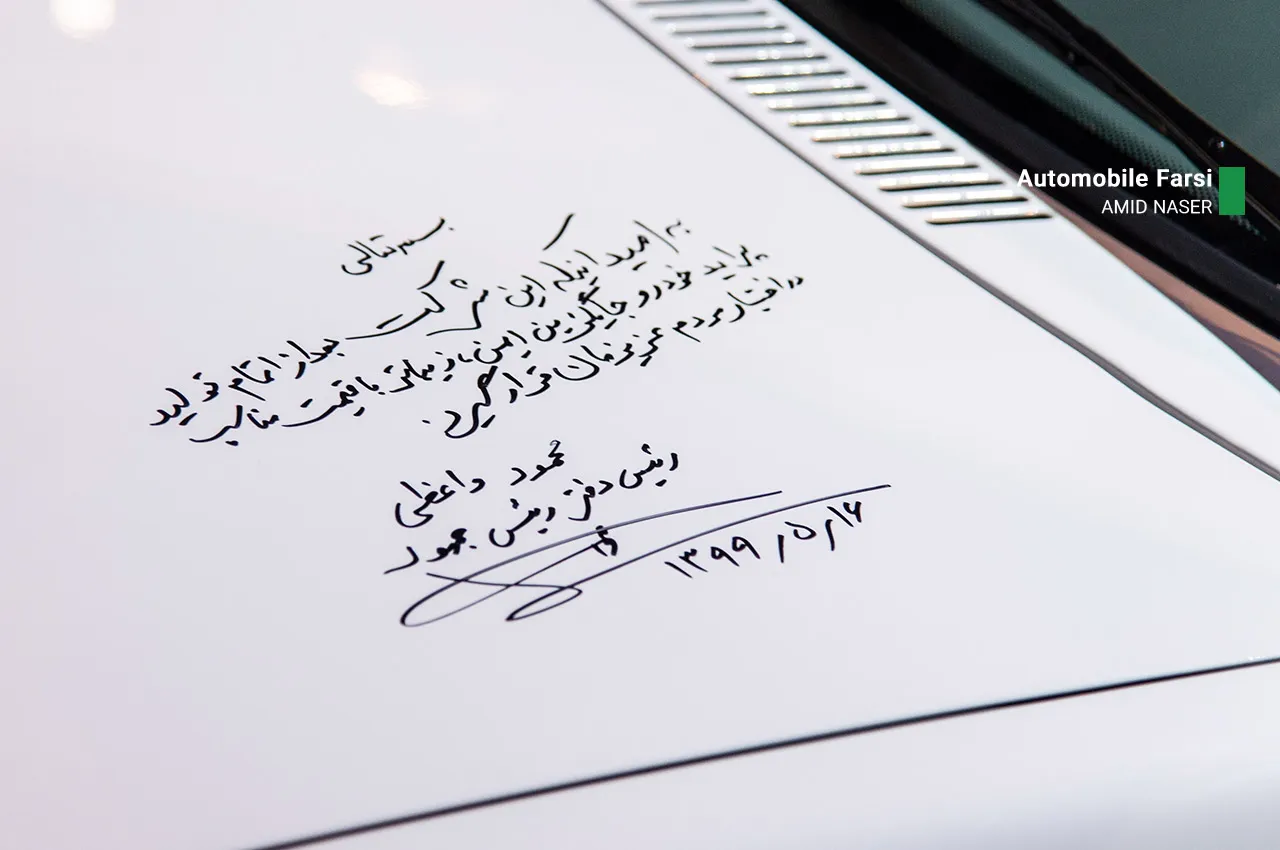 بسمه تعالی
به امید اینکه این شرکت بعد از اتمام تولید
پراید خودرو جایگزین ایمن، زیباتر با قیمت مناسب
در اختیار مردم عزیزمان قرار گیرد.
محمود واعظی
رئیس دفتر رئیس جمهور
۱۳۹۹/۵/۱۶
Automobile Farsi
AMID NASER